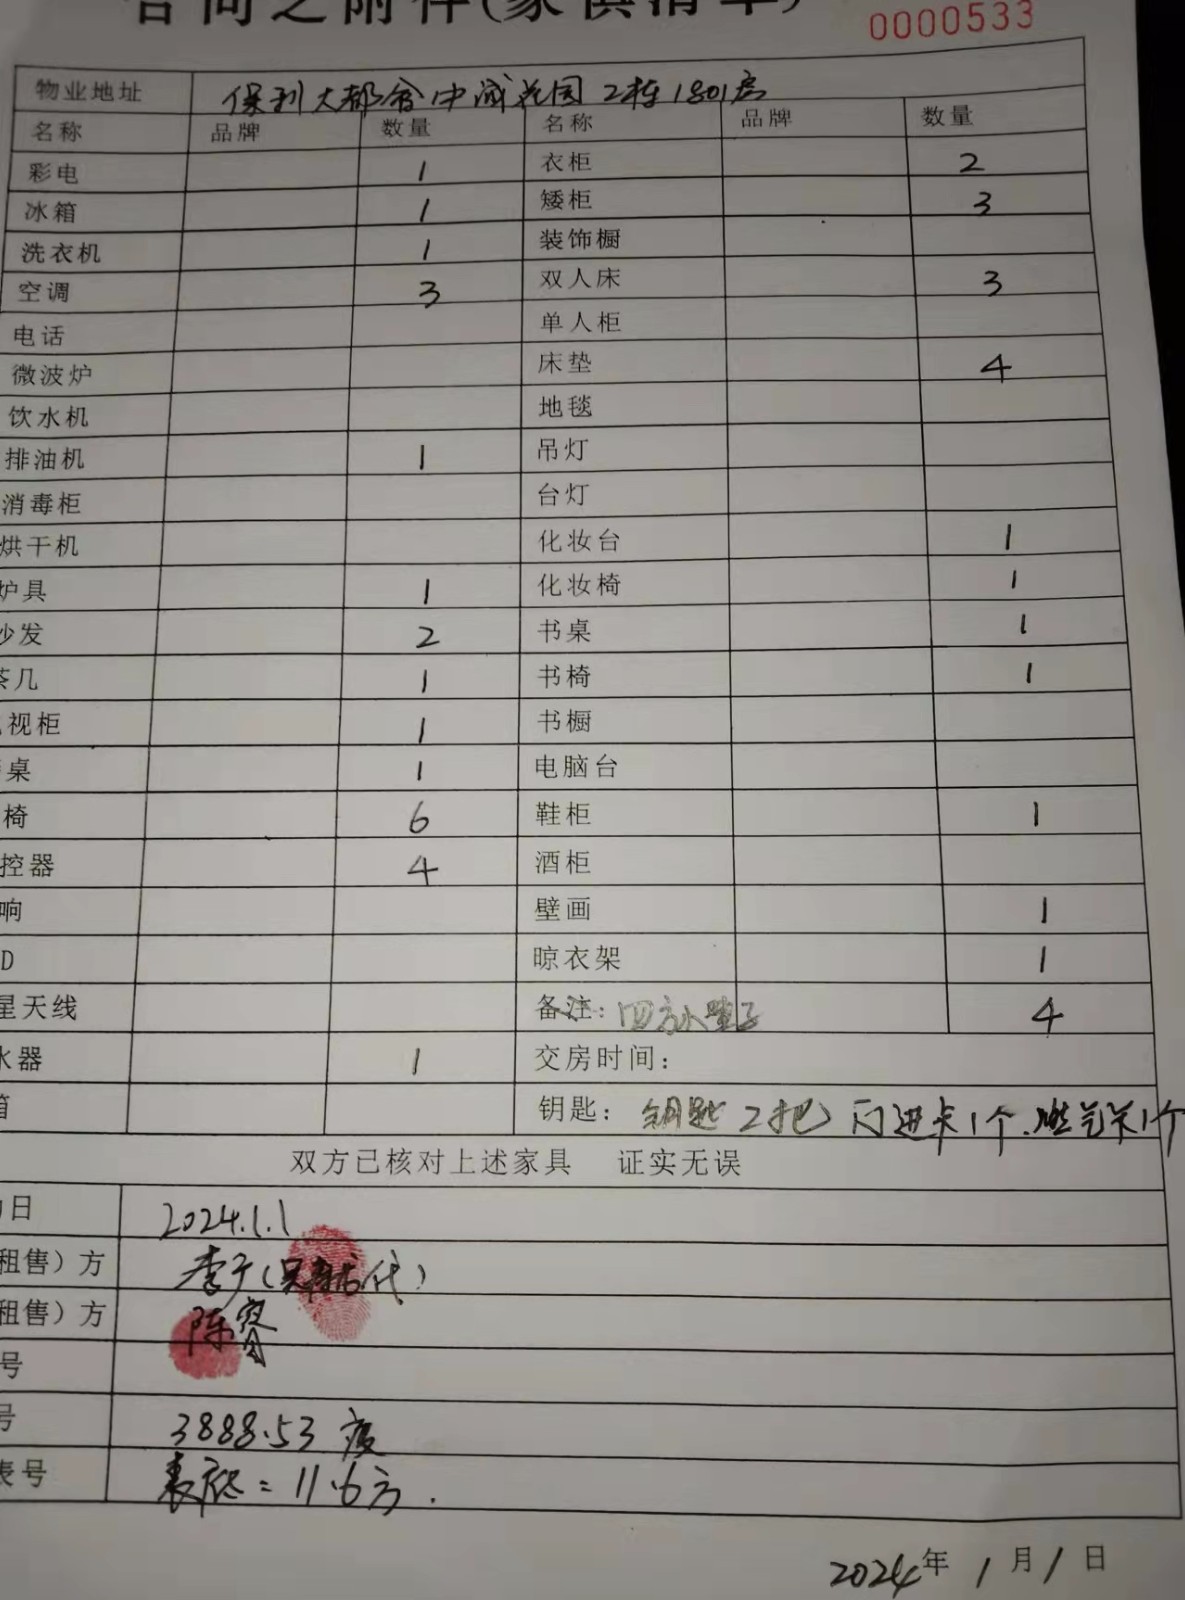 合同之附件(家俱清单)
0000533
物业地址 保利大都会中诚花园2栋1801房
名称 品牌 数量 名称 品牌 数量
彩电 1 衣柜 2
冰箱 1 矮柜 3
洗衣机 1 装饰橱
空调 3 双人床 3
电话 单人柜
微波炉 床垫 4
饮水机 地毯
排油机 1 吊灯
消毒柜 台灯
烘干机 化妆台 1
炉具 1 化妆椅 1
沙发 2 书桌 1
茶几 1 书椅 1
视柜 1 书橱
桌 1 电脑台
椅 6 鞋柜 1
控器 4 酒柜
响 壁画 1
D 晾衣架 1
星天线 备注: 四方 4
水器 1 交房时间:
箱 钥匙: 钥匙2把 门进卡1个.燃气卡1个
双方已核对上述家具 证实无误
日 2024.1.1
租售)方 李于( 代)
租售)方 陈睿
号
号 3888.53度
表号 表底=11.6方.
2024年1月1日